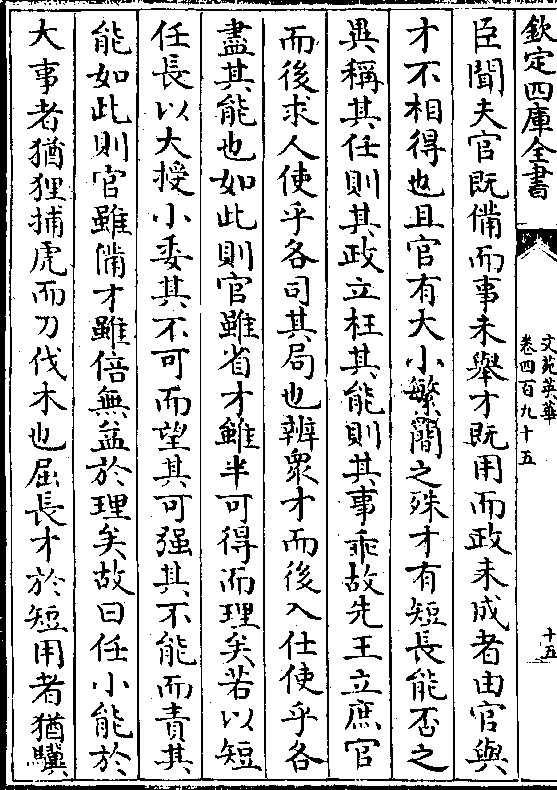 欽定四庫全書
文苑英華
卷四百九十五
十五
臣聞夫官既備而事未舉才既用而政未成者由官與
才不相得也且官有大小繁𥳑之殊才有短長能否之
異稱其任則其政立枉其能則其事乖故先王立庶官
而後求人使乎各司其局也辨衆才而後入仕使乎各
盡其能也如此則官雖省才雖半可得而理矣若以短
任長以大授小委其不可而望其可强其不能而責其
能如此則官雖備才雖倍無益於理矣故曰任小能於
大事者猶狸捕虎而刀伐木也屈長才於短用者猶驥